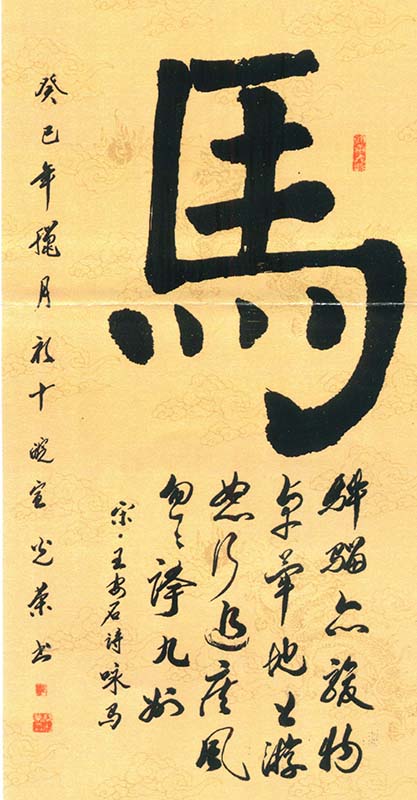 馬
骅骝亦骏物
卓荦地上游
怒行追疾風
忽々跨九州
宋·王安石诗咏马
癸巳年臘月初十皖宣光荣书